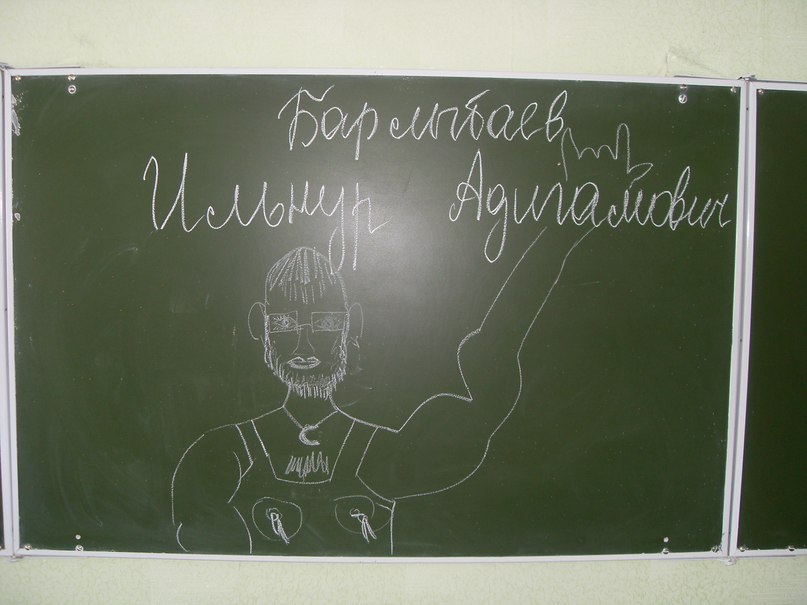 Барлыбаев
Ильнур Адигамович